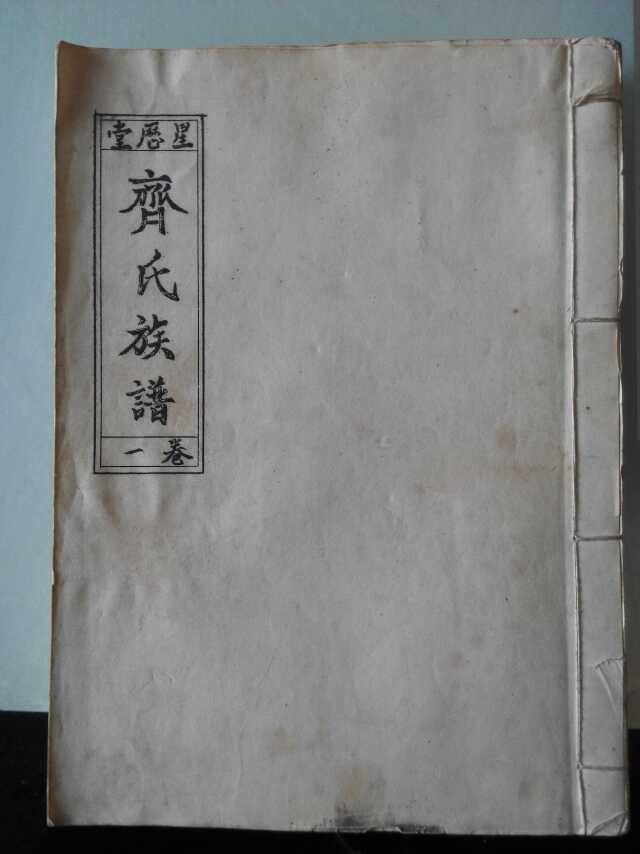 星歷堂
齊氏族譜
卷一